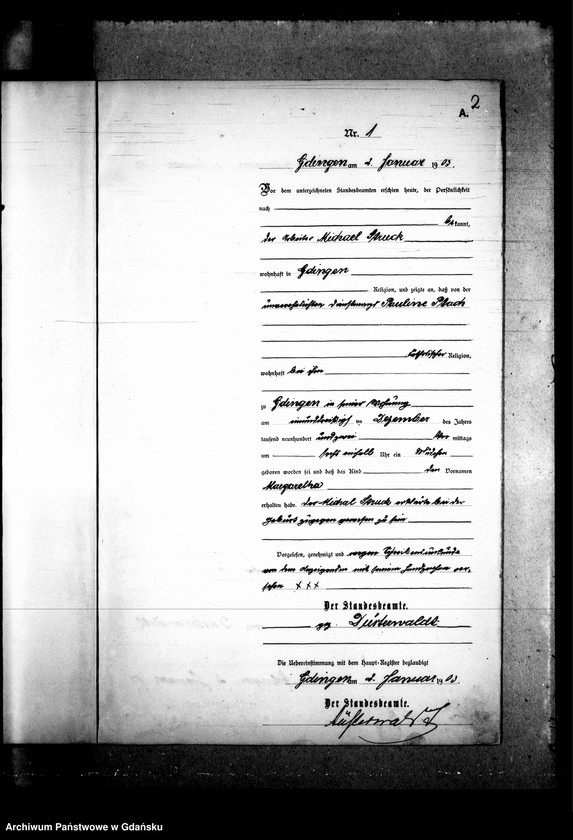 A. 2
Nr. 1
Gdingen am 2. Januar 1903.
Vor dem unterzeichneten Standesbeamten erschien heute, der Persönlichkeit
nach
bekannt,
der Arbeiter Michael Struck
wohnhaft in Gdingen
Religion, und zeigte an, daß von der
unverehelichten Dienstmagd Pauline
katholischer Religion,
wohnhaft bei ihm
zu Gdingen in seiner Wohnung
am einunddreißigsten Dezember des Jahres
tausend neunhundert und zwei Vor mittags
um sechs einhalb Uhr ein Mädchen
geboren worden sei und daß das Kind den Vornamen
Margaretha
erhalten habe. Der Michael Struck erklärte bei der
Geburt zugegen gewesen zu sein
Vorgelesen, genehmigt und wegen Schreibensunkunde
von dem Anzeigenden mit seinem Handzeichen ver-
sehen XXX
Der Standesbeamte.
gez. Düsterwaldt
Die Uebereinstimmung mit dem Haupt-Register beglaubigt
Gdingen am 2. Januar 1903.
Der Standesbeamte.
Düsterwaldt
Archiwum Państwowe w Gdańsku